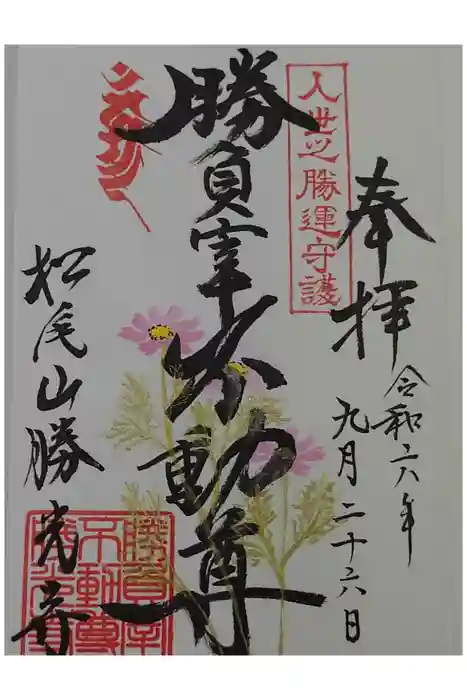 奉拝
令和六年
九月二十六日
人世之勝運守護
勝負寺不動尊
松尾山勝光寺
勝負寺
不動尊
勝光寺